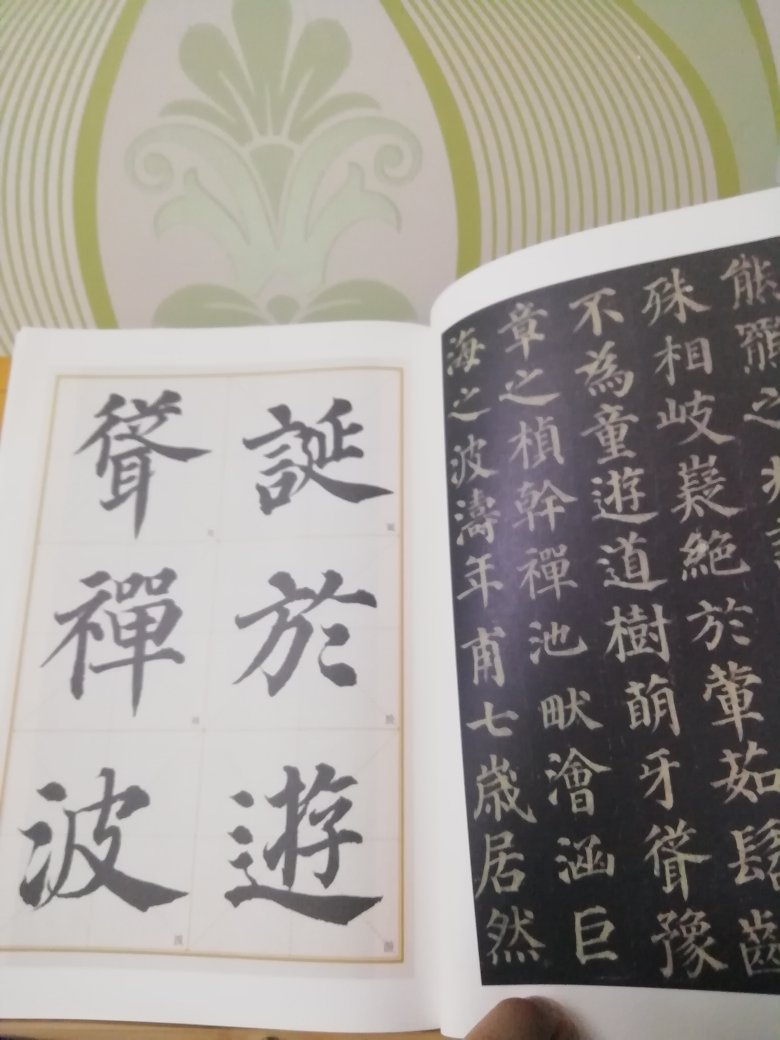 熊羆之
殊相岐嶷絶於葷茹髫
不為童遊道樹萌牙聳豫
章之楨幹禪池畎澮涵巨
海之波濤年甫七歲居然
誕於遊
聳禪波